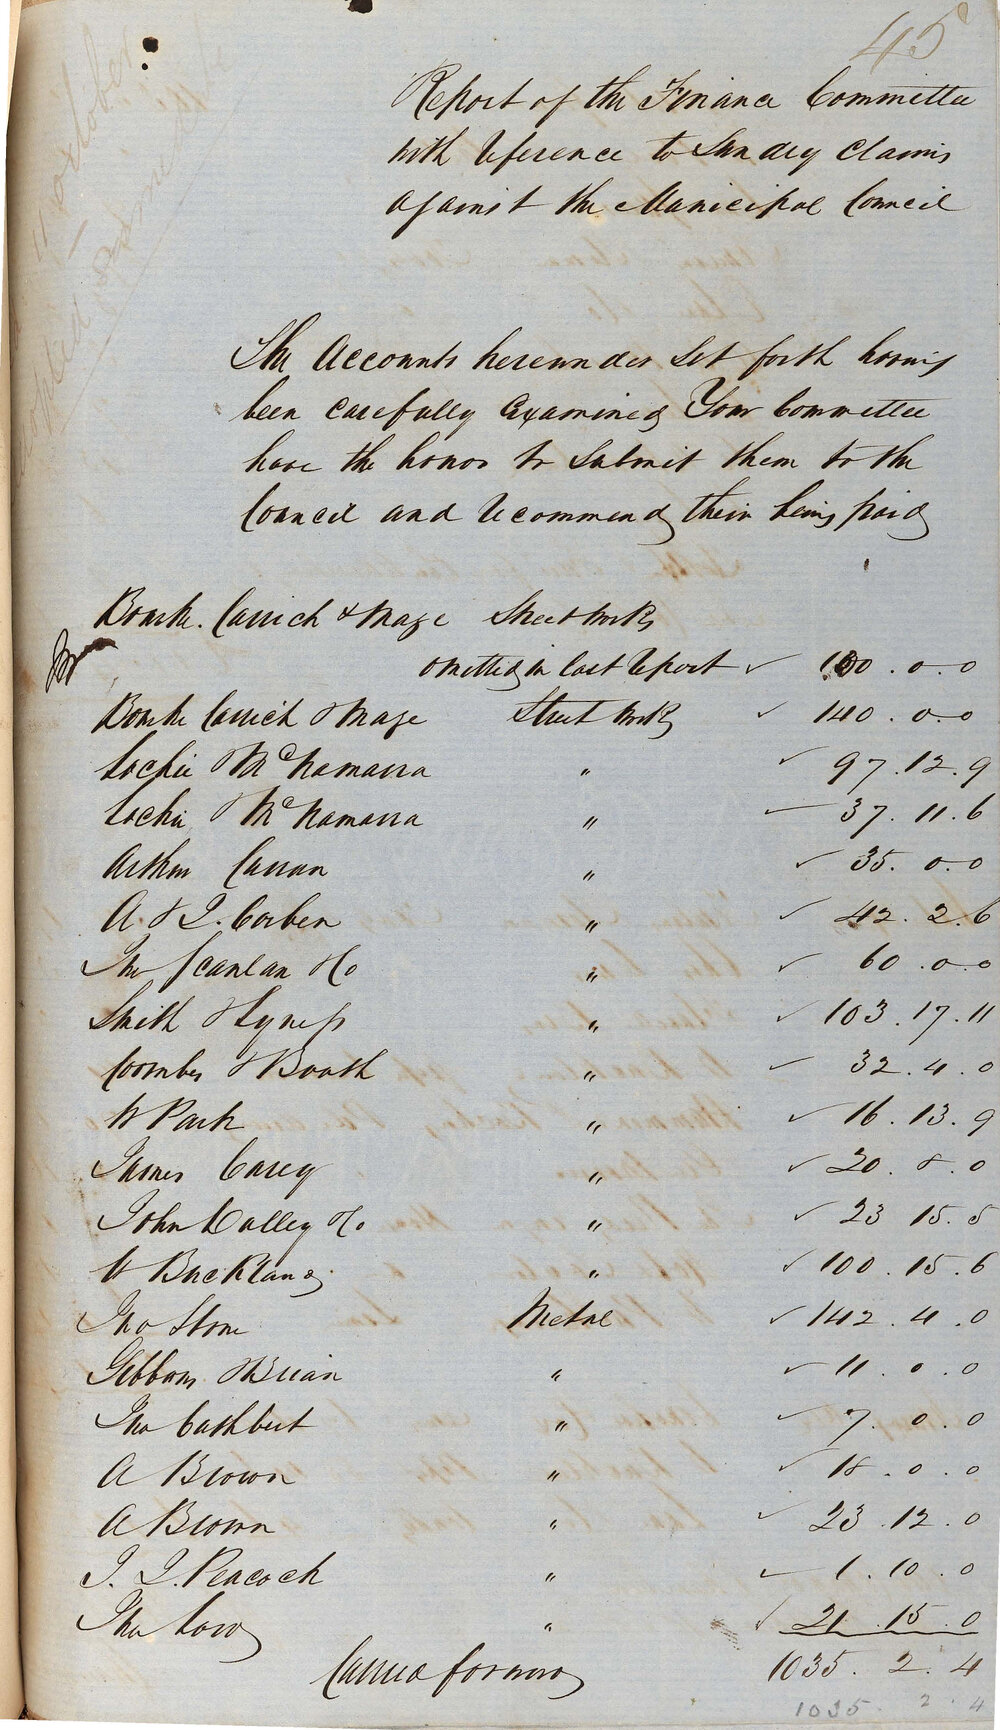 45
Report of the Finance Committee
with reference to Sundry Claims
against the Municipal Council
The Accounts hereunder Set forth having
been carefully examined Your Committee
have the honor to Submit them to the
Council and recommend their being paid
Bourke. Carrick & Mage Street Works
omitted in last report ✓ 100.0.0
Bourke Carrick & Mage Street Works ✓ 140.0.0
Lochie & McNamarra " ✓ 97.12.9
Lochie & McNamarra " — 37.11.6
Arthur Curran " ✓ 35.0.0
A. & J. Corben " ✓ 42.2.6
Jno Scanlan & Co " ✓ 60.0.0
Smith & Lyness " ✓ 103.17.11
Coombes & Booth " ✓ 32.4.0
W Park " ✓ 16.13.9
James Carey " ✓ 20.8.0
John Dalley & Co " ✓ 23 15.5
W Buckland " ✓ 100.15.6
Jno Stone Metal ✓ 142.4.0
Gibbons & Brian " ✓ 11.0.0
Jno Cuthbert " ✓ 7.0.0
A Brown " ✓ 18.0.0
A Brown " ✓ 23.12.0
J. J. Peacock " ✓ 1.10.0
Jno Low " ✓ 21.15.0
Carried forward 1035.2.4
1035. 2.4